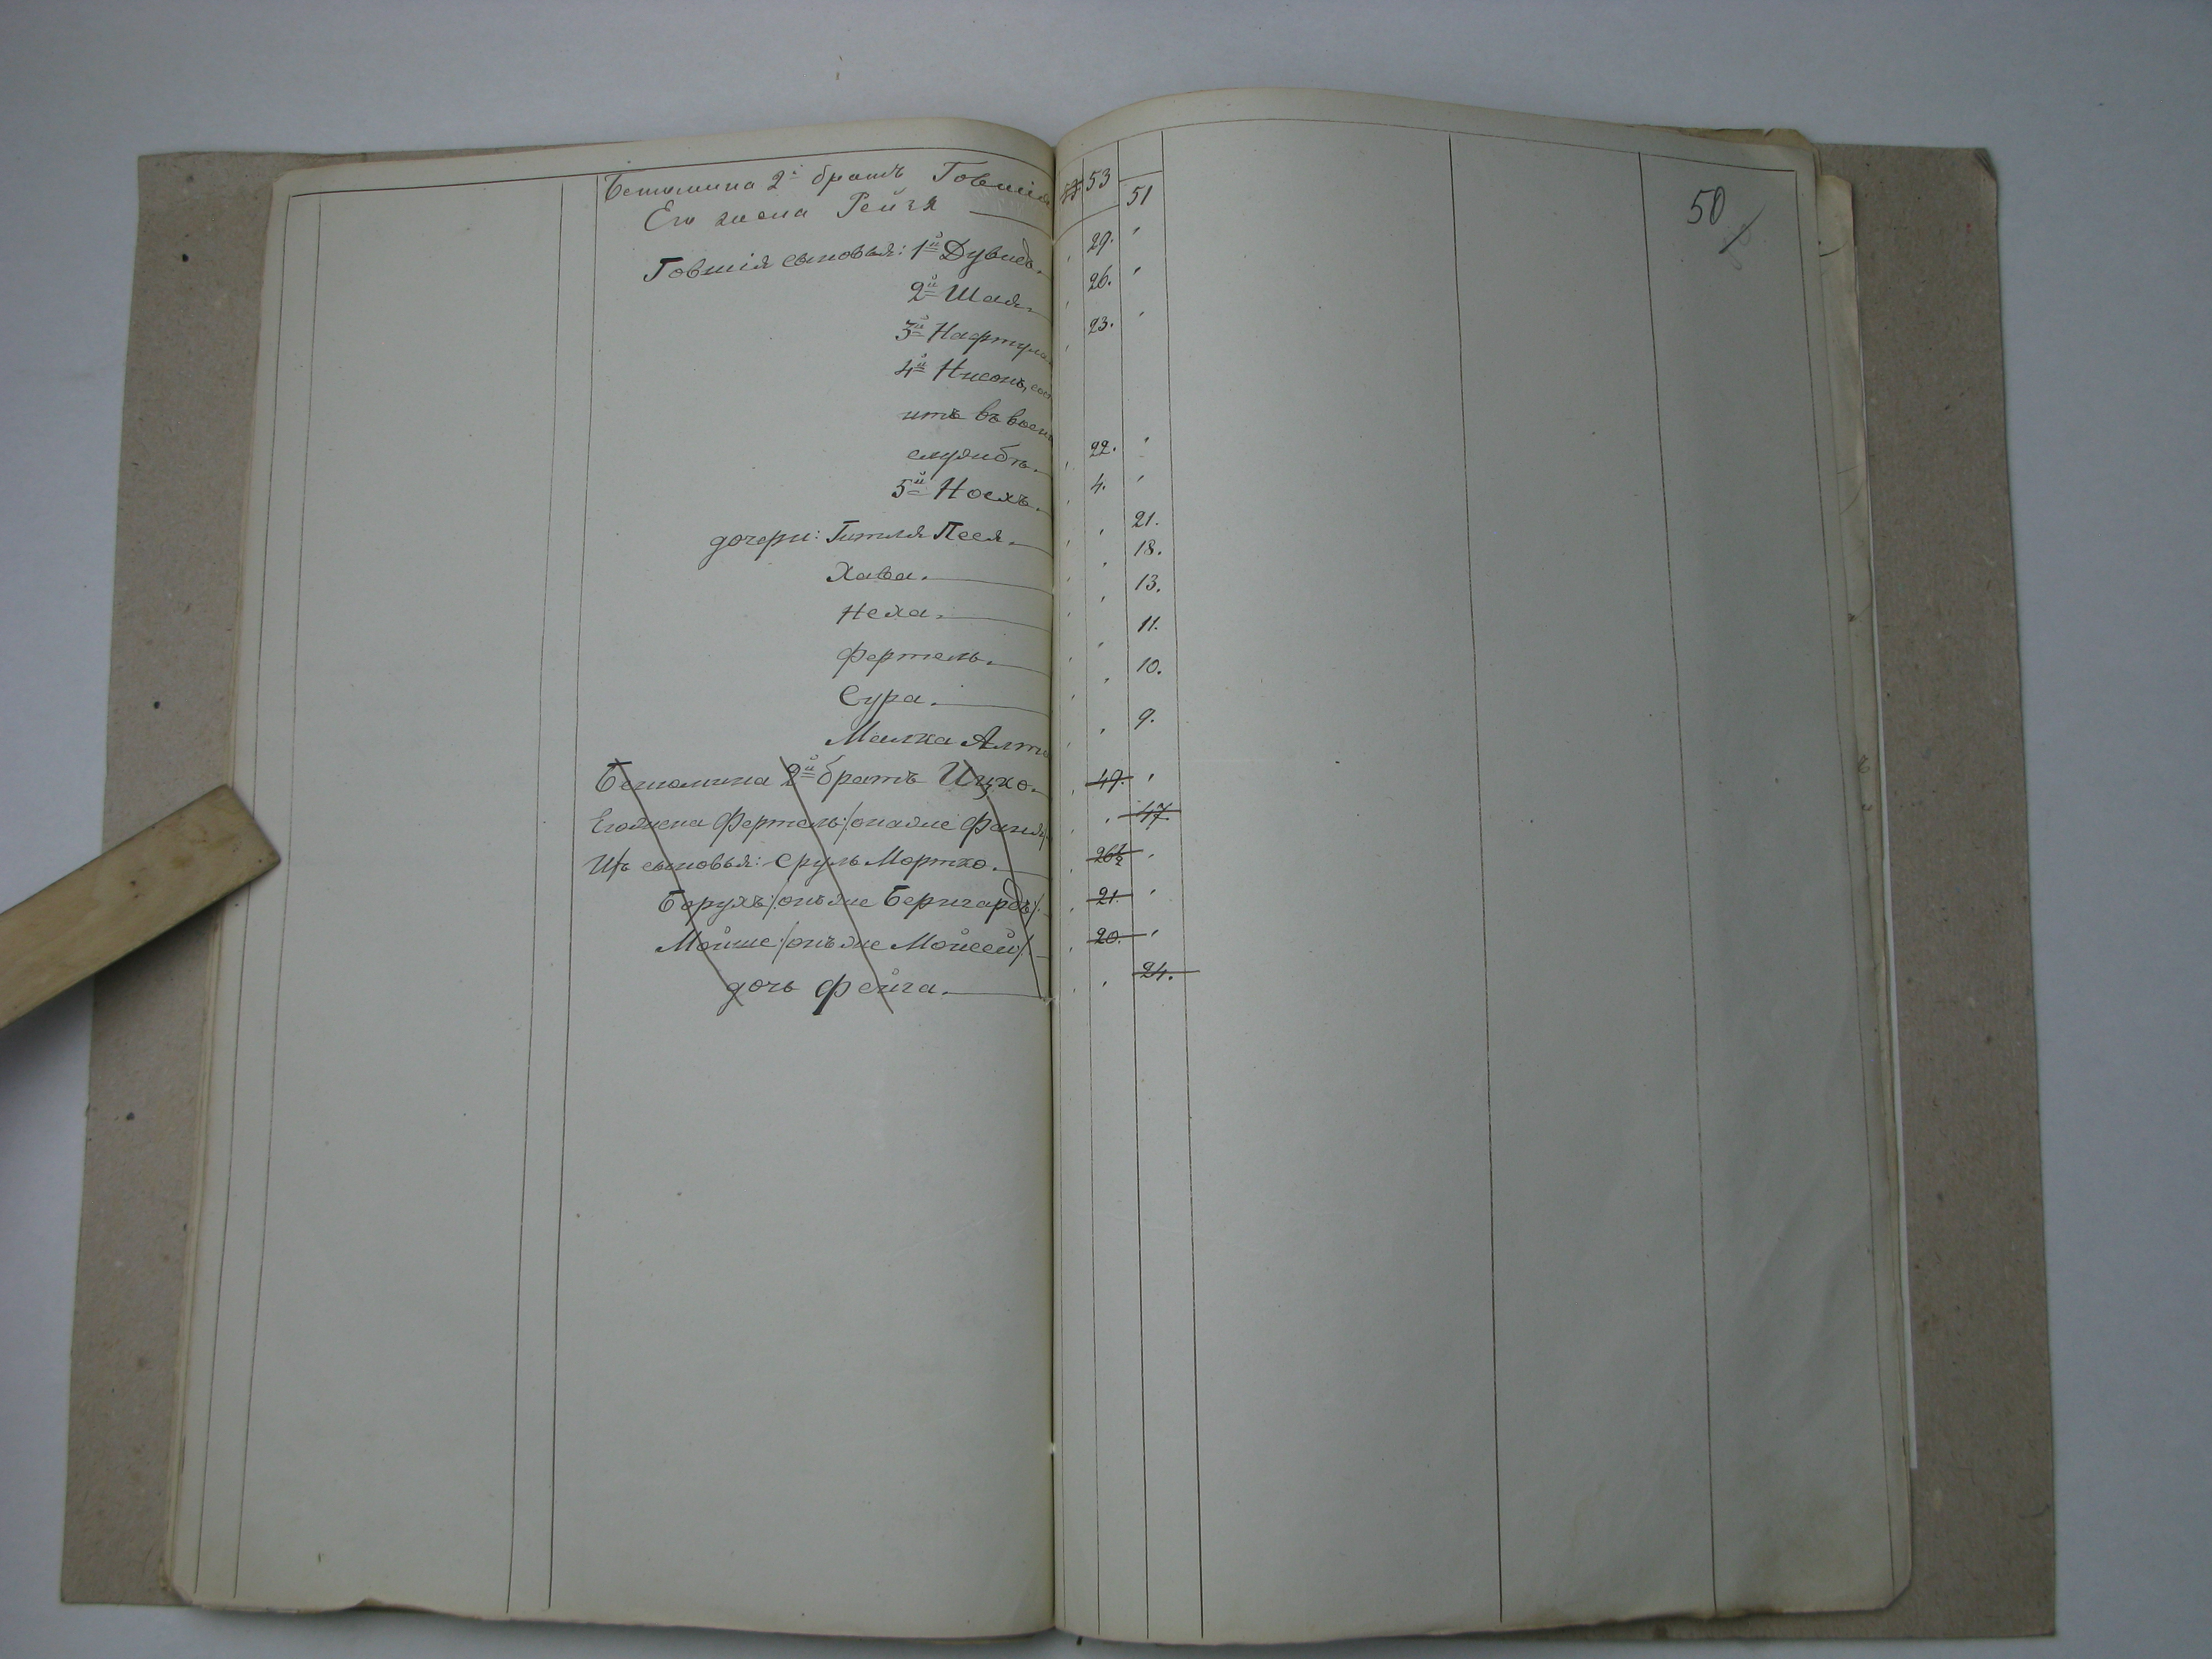 Бенюмина 2й братъ Говшія 53
Его жена Рейзя 51
Говшія сыновья: 1й Дувидъ. 29.
2й Шая. 26.
3й Нафтула 23.
4й Нисонъ, сос
итъ въ воен
службѣ. 22.
5й Носхъ. 4.
дочери: Гитля Песя. 21.
Хава. 18.
Неха. 13.
Фертель. 11.
Сура. 10.
Малка Алта 9.
Бенюмина 2й братъ Ицко. 49.
Его жена Фертель /она же Фаня/ 47.
Ихъ сыновья: Сруль Мортко. 26½
Борухъ /онъ же Бернгардъ/. 21.
Мойше /онъ же Мойсей/ 20.
дочь Фейга. 24.
50